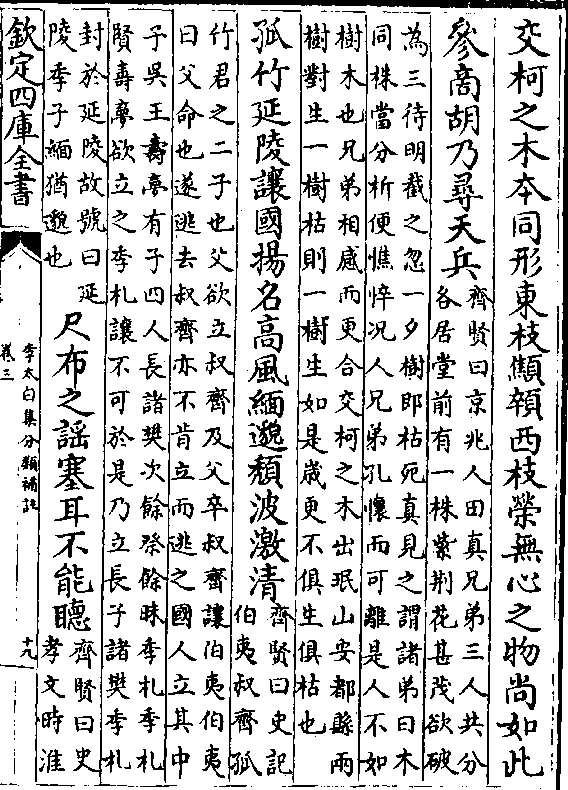 交柯之木本同形東枝顦顇西枝榮無心之物尚如此
參商胡乃尋天兵
齊賢曰京兆人田真兄弟三人共分
各居堂前有一株紫荆花甚茂欲破
為三待明截之忽一夕樹即枯死真見之謂諸弟曰木
同株當分析便憔悴况人兄弟孔懷而可離是人不如
樹木也兄弟相感而更合交柯之木出珉山安都縣兩
樹對生一樹枯則一樹生如是歲更不俱生俱枯也
孤竹延陵讓國揚名高風緬邈頽波激清
齊賢曰史記
伯夷叔齊孤
竹君之二子也父欲立叔齊及父卒叔齊讓伯夷伯夷
曰父命也遂逃去叔齊亦不肯立而逃之國人立其中
子吳王壽夢有子四人長諸樊次餘祭餘昧季札季札
賢壽夢欲立之季札讓不可於是乃立長子諸樊季札
封於延陵故號曰延
陵季子緬猶邈也
尺布之謡塞耳不能聽
齊賢曰史
孝文時淮
欽定四庫全書
李太白集分類補註
卷三
十九